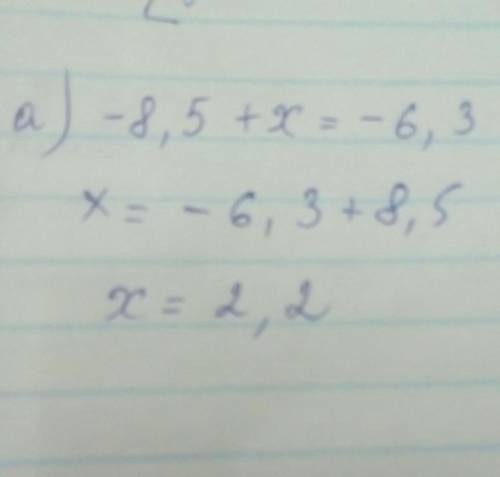 a) -8,5 + x = -6,3
x = -6,3 + 8,5
x = 2,2